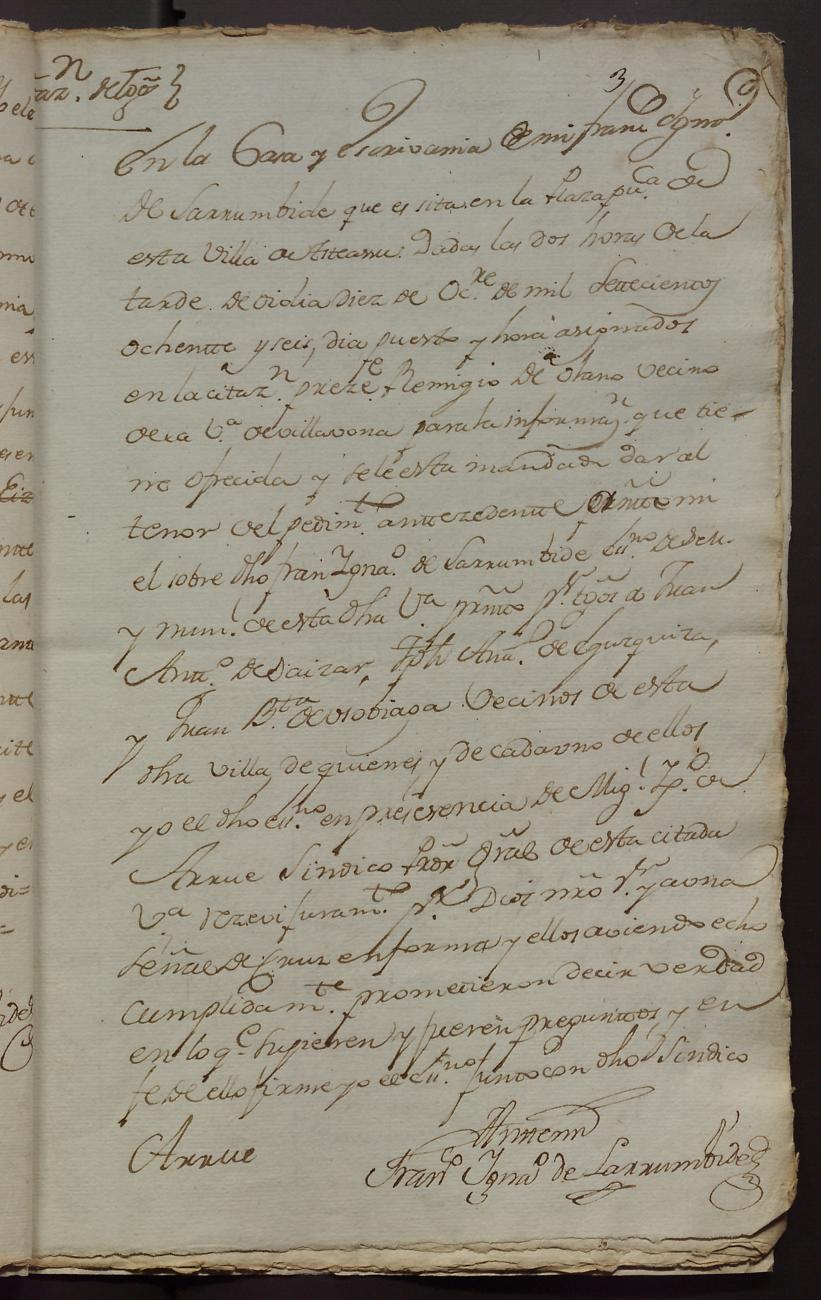 az.n de tgos
3
En la Casa y escrivania de mi Franco Ygno.
de Larrumbide que es sita en la Plaza puca. de
esta Villa de Asteasu: Dadas las dos horas de la
tarde de oi dia diez de Ocre. de mil setecientos
ochentte y seis, dia puesto y hora asignados
en la citazn. prezte. Remigio de Olano vecino
de la Va. de villavona para la informazn. que tie-
ne ofrecida y se le esta mandada dar al
tenor del pedimto. anttezedentte antte mi
el sobre dho Fran Ygnao. de Larrumbide esno. de su
y numo. de esta dha Va prnto pr. tgos a Juan
Antto. de Saizar, Jph Anto. de Egurquiza,
y Juan Bta de Usobiaga Vecinos de esta
dha villa, de quienes y de cada uno de ellos
yo el dho esno. en presencia de Migl. Yo. de
Arrue Sindico Prör gräl de esta citada
Va rezevi juramto. pr. Dios nro Sr. y a una
señal de Cruz en forma y ellos aviendo echo
cumplidamte. prometieron decir verdad
en lo qe. supieren y fueren preguntos, y en
fe de ello firme yo el esno junto con dho Sindico
Arrue
Antte mi
Frano. Ygnao. de Larrumbide